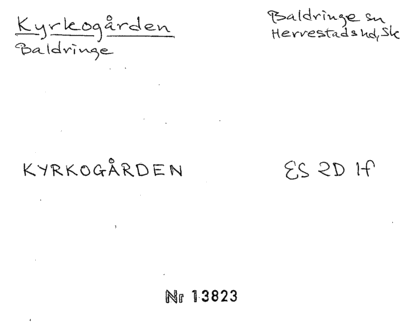 Kyrkogården
Baldringe
Baldringe sn
Herrestads hd, Sk
KYRKOGÅRDEN
ES 2D 1f
Nr 13823